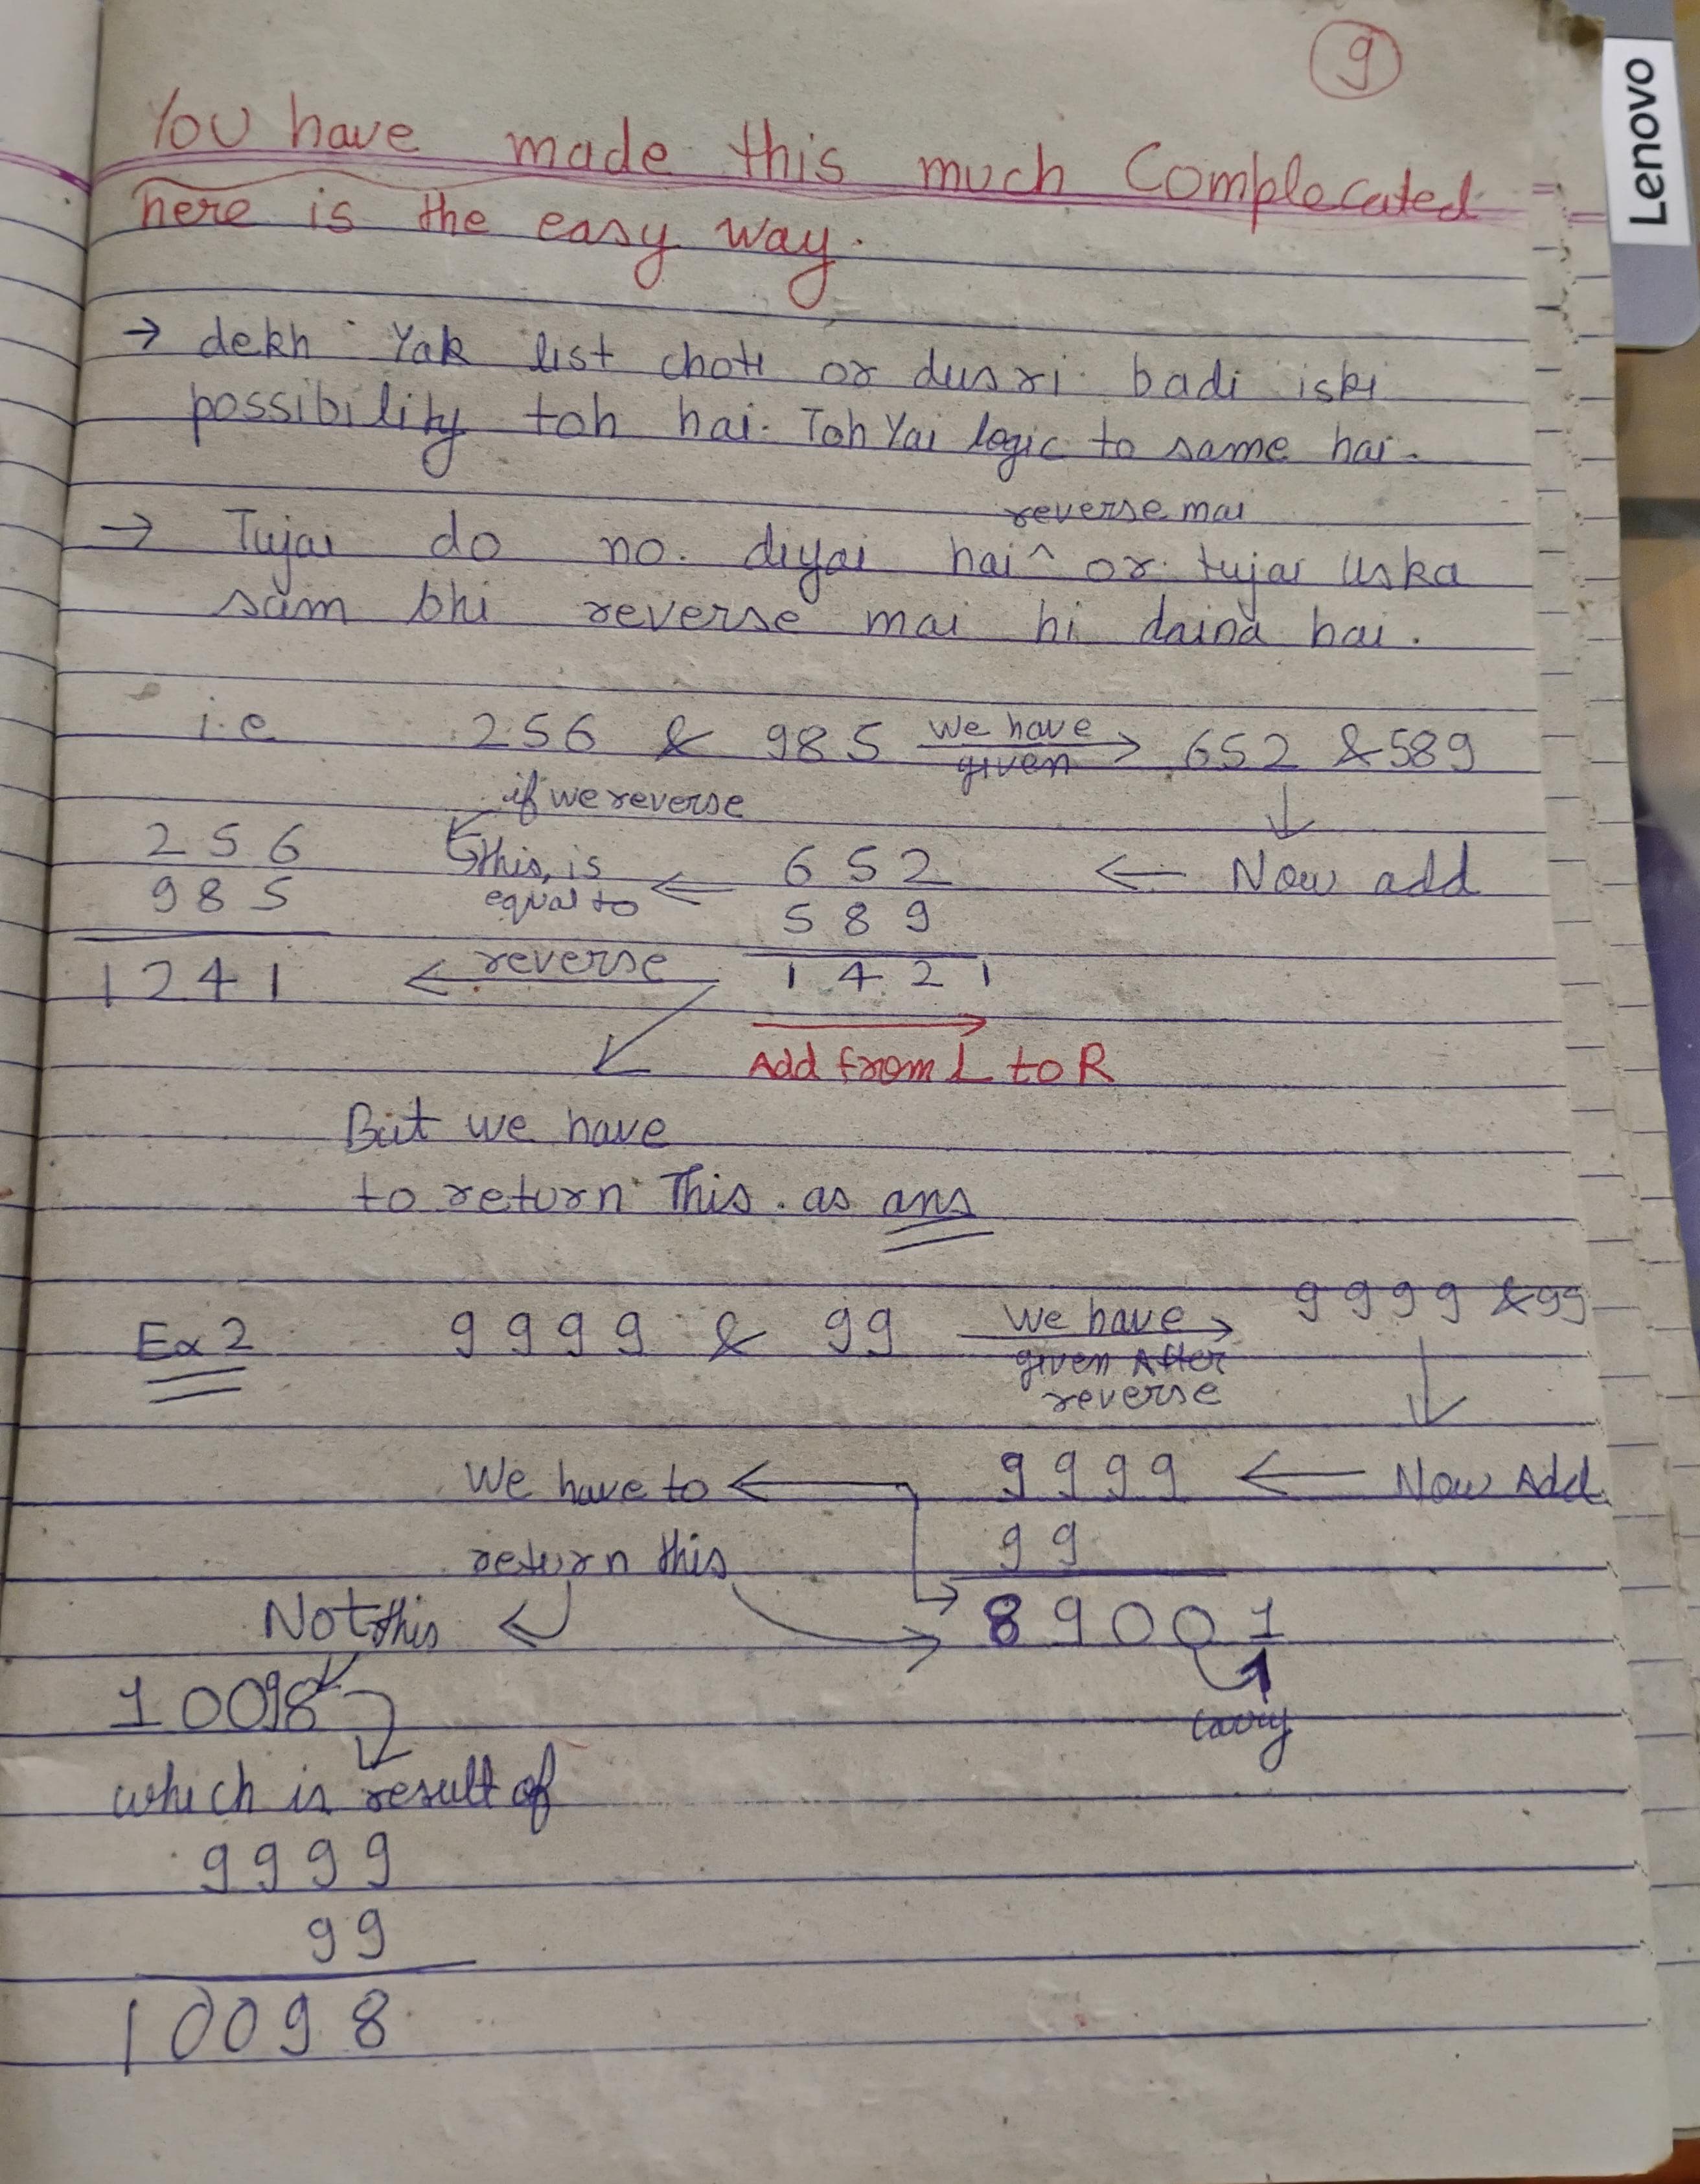 9
Lenovo
You have made this much Complecated
here is the easy way.
→ dekh Yak list choti or dusri badi iski
possibility toh hai. Toh Yai logic to same hai.
reverse mai
→ Tujai do no. diyai hai ^ or tujai uska
sum bhi reverse mai hi daina hai.
i.e 256 & 985 we have given → 652 & 589
if we reverse
↓
256
985
1241
this, is
equal to
⇐
652
589
1421
← Now add
← reverse
Add from L to R
But we have
to return This. as ans
Ex 2 9999 & 99 we have given After reverse → 9999 & 99
We have to ← 9999 ← Now Add
return this 99
Not this 89001
10098 carry
which is result of
9999
99
10098